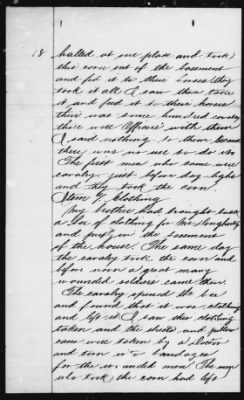 18
halted at our place and took
this corn out of the basement
and fed it to their horses they
took it all I saw them take
it and feed it to their horses
there was some hundred cavalry
there were Officers with them
I said nothing to them because
there was no use to do so
The first men who came were
cavalry just before day-light
and they took the corn
Item 7. Clothing
My brother had brought back
a Box of clothing for his daughters
and put in the basement
of the house. The same day
the cavalry took the corn and
before noon a great many
wounded soldiers came there
The cavalry opened the box
and found that it was clothing
and left it I saw this clothing
taken and the sheets and pillow
cases were taken by a Doctor
and torn into bandages
for the wounded men The men
who took the corn had left